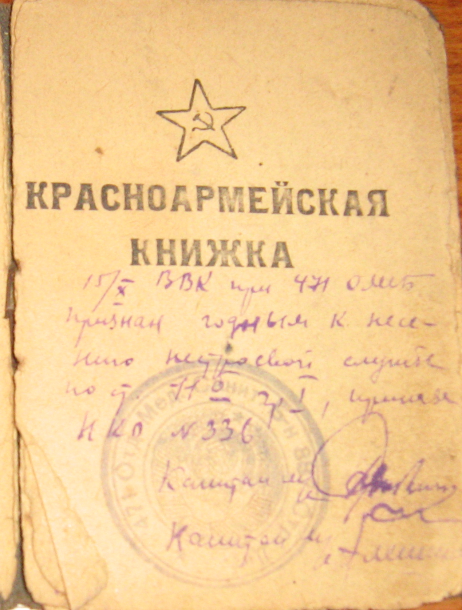 КРАСНОАРМЕЙСКАЯ
КНИЖКА
15/X ВВК при 471 ОМСБ
признан годным к несе-
нию нестроевой службы
по ст. гр. I, приказ
НКО № 336
Капитан м/с
Капитан м/с